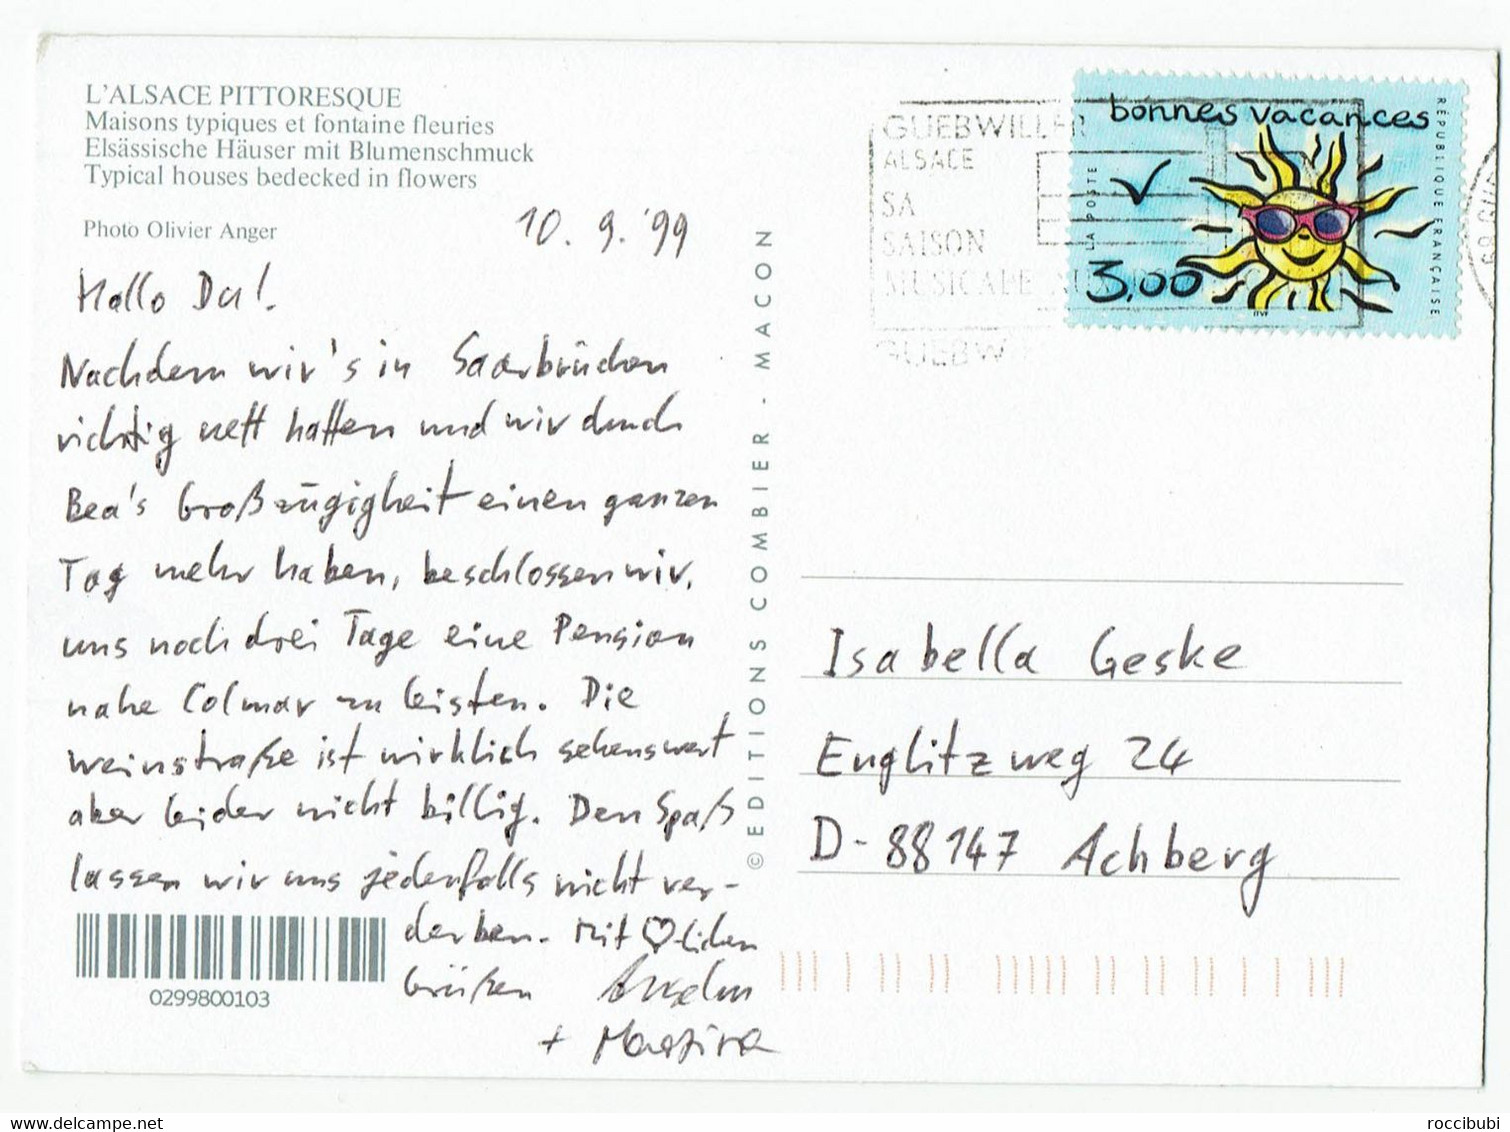 L'ALSACE PITTORESQUE
Maisons typiques et fontaine fleuries
Elsässische Häuser mit Blumenschmuck
Typical houses bedecked in flowers
Photo Olivier Anger
10. 9. '99
Hallo Du!
Nachdem wir's in Saarbrücken
richtig nett hatten und wir durch
Bea's Großzügigkeit einen ganzen
Tag mehr haben, beschlossen wir,
uns noch drei Tage eine Pension
nahe Colmar zu leisten. Die
Weinstraße ist wirklich sehenswert
aber leider nicht billig. Den Spaß
lassen wir uns jedenfalls nicht ver-
derben. Mit ♡-lichen
Grüßen Anselm
+ Martina
0299800103
© EDITIONS COMBIER - MACON
GUEBWILLER
ALSACE
SA
SAISON
MUSICALE AUX
GUEBW
bonnes vacances
LA POSTE
3,00
RÉPUBLIQUE FRANÇAISE
Isabella Geske
Englitzweg 24
D-88147 Achberg
delcampe.net
roccibubi